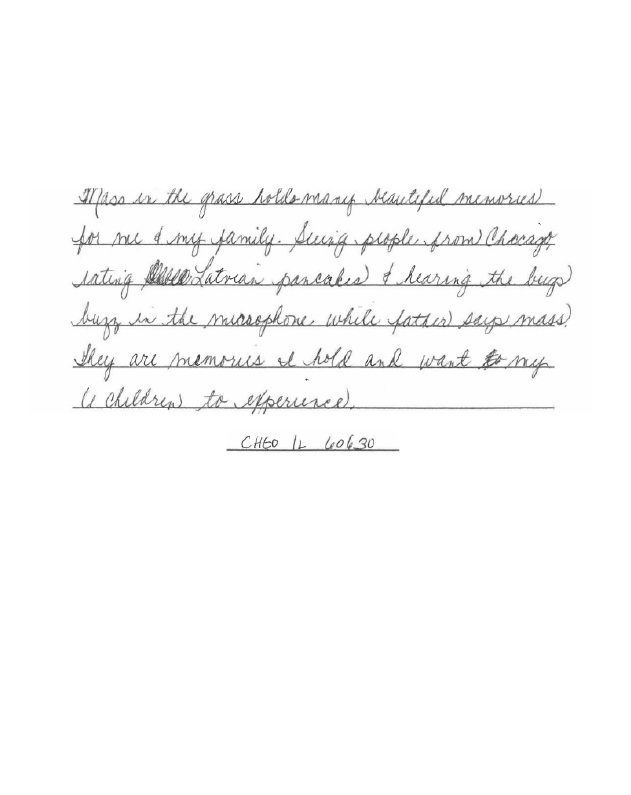 Mass in the grass holds many beautiful memories
for me & my family. Seeing people from Chicago,
eating Latvian pancakes & hearing the bugs
buzz in the microphone while father says mass.
They are memories I hold and want my
children to experience.
CHGO IL 60630